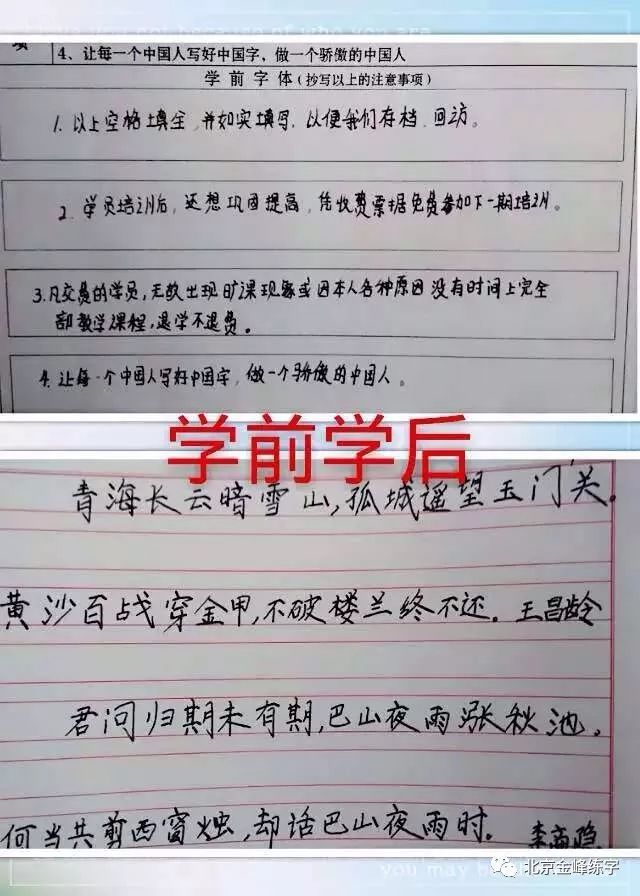 4、让每一个中国人写好中国字，做一个骄傲的中国人
学前字体（抄写以上的注意事项）
1. 以上空格填全，并如实填写，以便我们存档、回访。
2、学员培训后，还想巩固提高，凭收费票据免费参加下一期培训。
3.凡交费的学员，无故出现旷课现象或因本人各种原因没有时间上完全
部教学课程，退学不退费。
4.让每一个中国人写好中国字，做一个骄傲的中国人。
学前学后
青海长云暗雪山，孤城遥望玉门关。
黄沙百战穿金甲，不破楼兰终不还。王昌龄
君问归期未有期，巴山夜雨涨秋池。
何当共剪西窗烛，却话巴山夜雨时。李商隐
北京金峰练字
you may b